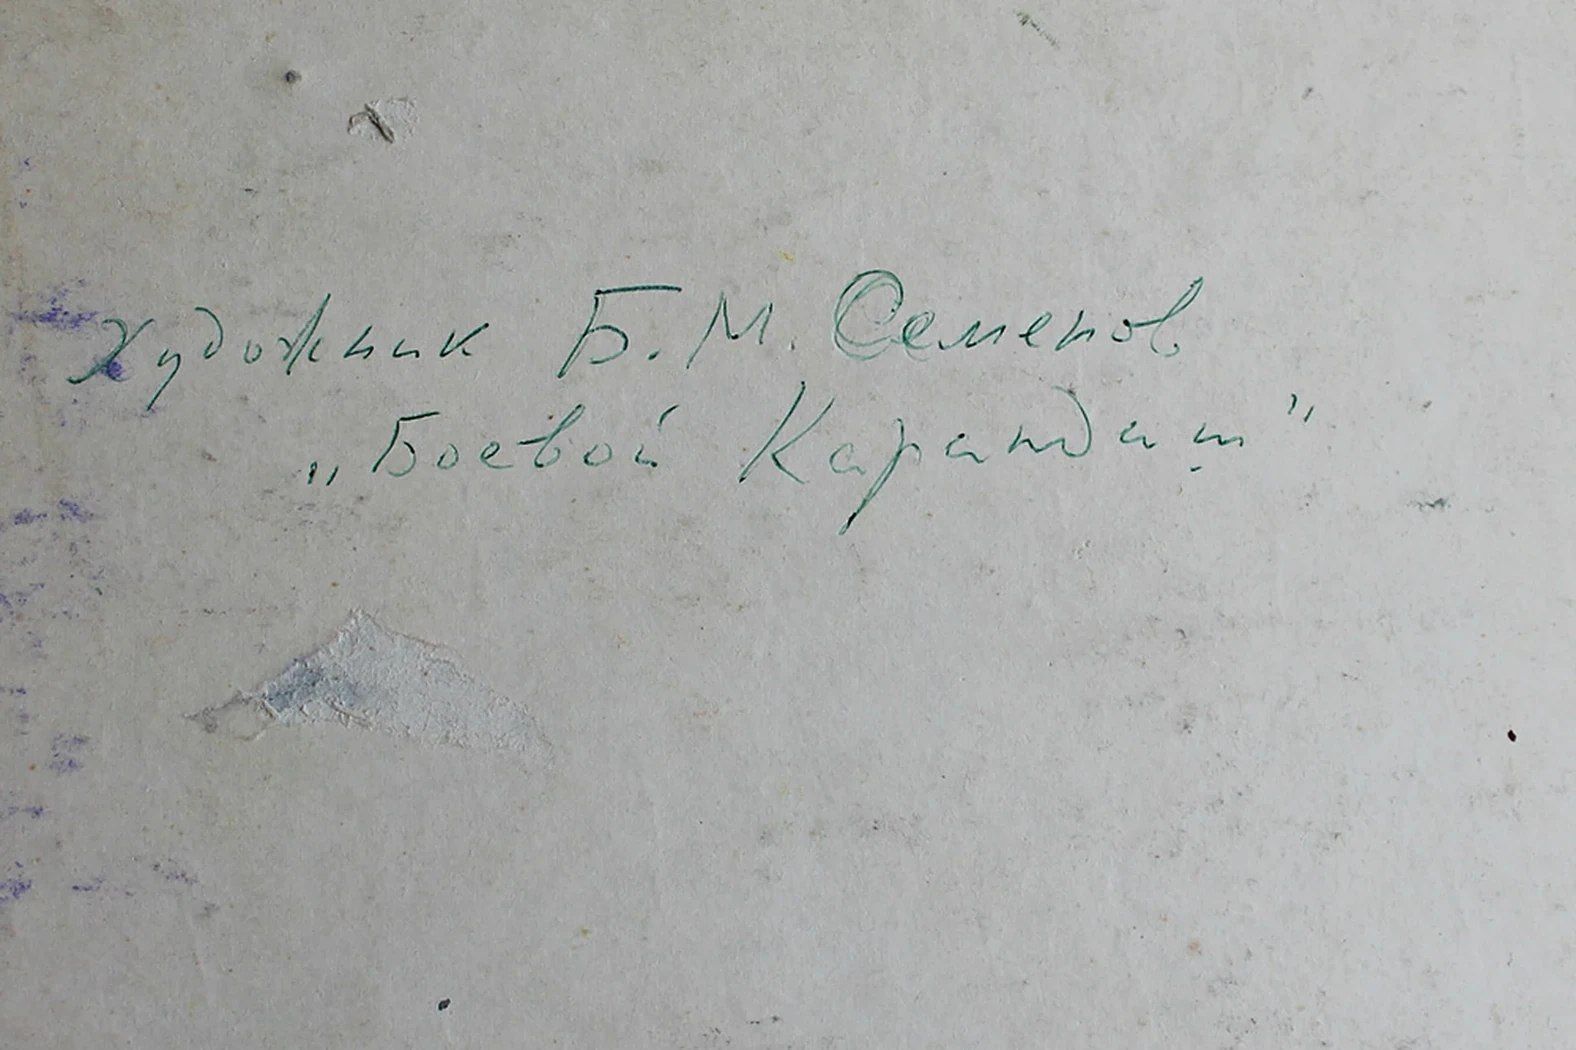 художник Б. М. Семенов
„Боевой Карандаш"